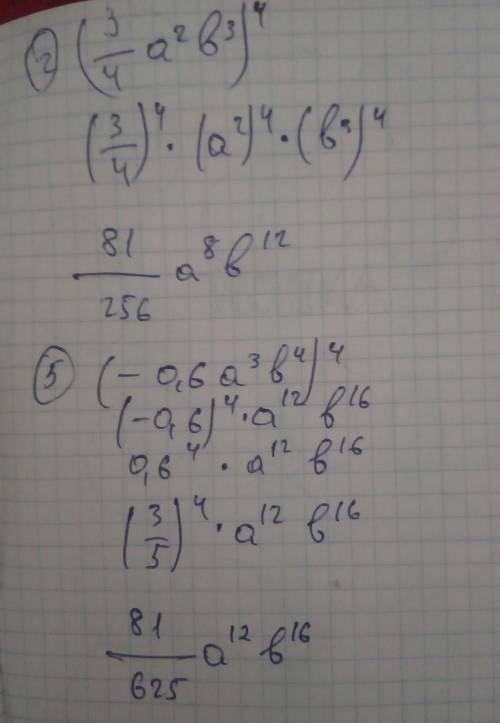 ② (3/4 a² b³)⁴
(3/4)⁴ · (a²)⁴ · (b³)⁴
81/256 a⁸ b¹²
⑤ (- 0,6 a³ b⁴)⁴
(-0,6)⁴ · a¹² b¹⁶
0,6⁴ · a¹² b¹⁶
(3/5)⁴ · a¹² b¹⁶
81/625 a¹² b¹⁶